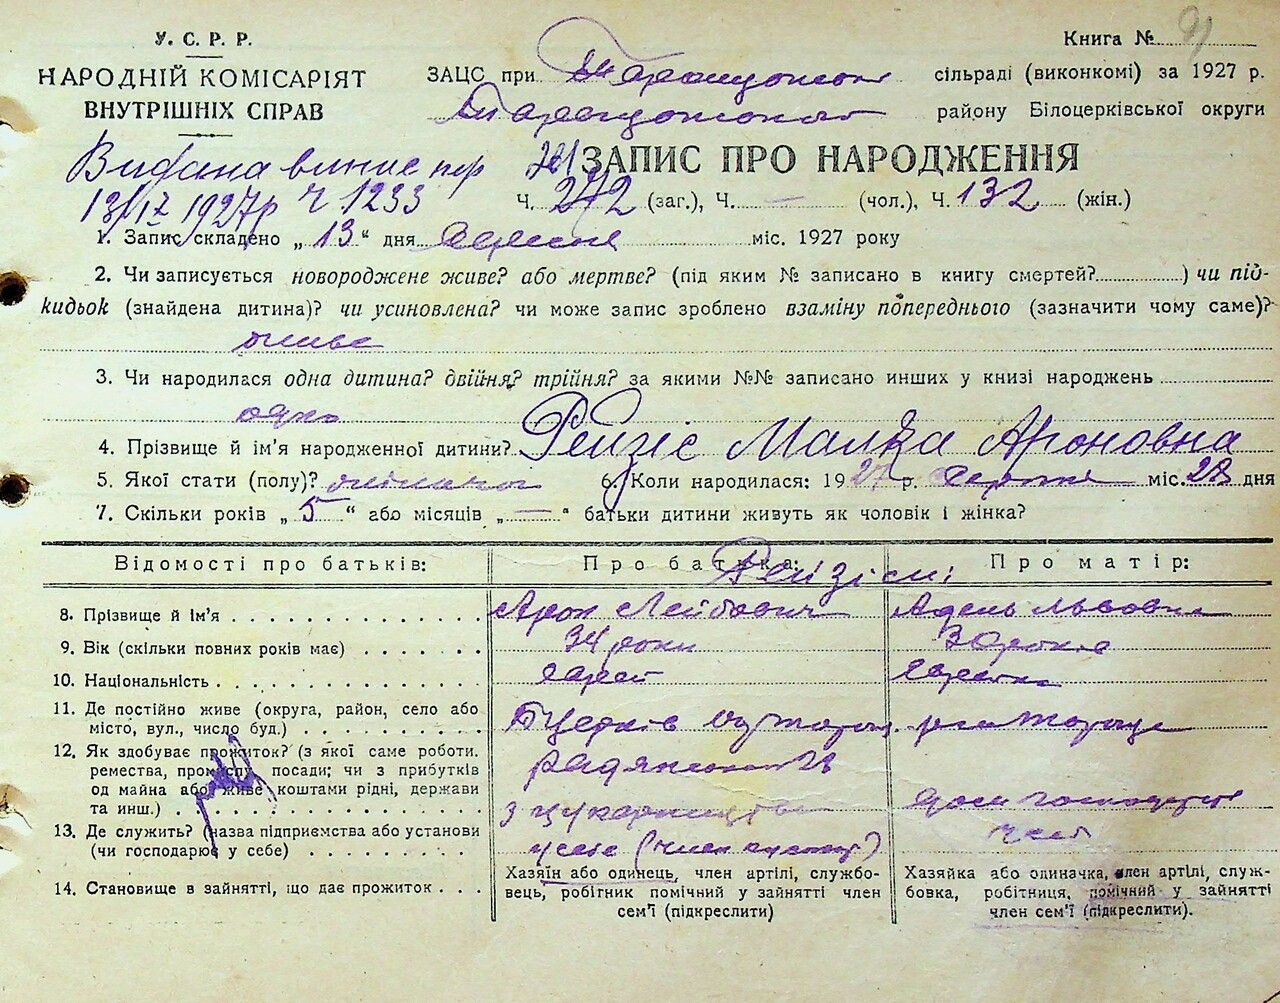 У. С. Р. Р.
НАРОДНІЙ КОМІСАРІЯТ
ВНУТРІШНІХ СПРАВ
Книга №
ЗАЦС при сільраді (виконкомі) за 1927 р.
району Білоцерківської округи
Видана випис пер
13/IX 1927р Ч. 1233
ЗАПИС ПРО НАРОДЖЕННЯ
Ч. 272 (заг.), Ч. — (чол.), Ч. 132 (жін.)
1. Запис складено „ 13 “ дня вересня міс. 1927 року
2. Чи записується новороджене живе? або мертве? (під яким № записано в книгу смертей?) чи під-
кидьок (знайдена дитина)? чи усиновлена? чи може запис зроблено взаміну попереднього (зазначити чому саме)?
живе
3. Чи народилася одна дитина? двійня? трійня? за якими №№ записано инших у книзі народжень
одна
4. Прізвище й ім’я народженної дитини? Рейзіс Малка Ароновна
5. Якої стати (полу)? жіночої 6. Коли народилася: 1927 р. Серпня міс. 28 дня
7. Скільки років „ 5 “ або місяців „ — “ батьки дитини живуть як чоловік і жінка?
Відомості про батьків: Про батька: Про матір:
Рейзіси:
8. Прізвище й ім’я Арон Лейбович Адель Львовна
9. Вік (скільки повних років має) 34 роки 30 років
10. Національність єврей єврейка
11. Де постійно живе (округа, район, село або
місто, вул., число буд.)
12. Як здобуває прожиток? (з якої саме роботи.
ремества, промислу посади; чи з прибутків
од майна або живе коштами рідні, держави
та инш.)
13. Де служить? (назва підприємства або установи
(чи господарює у себе)
14. Становище в зайнятті, що дає прожиток
Хазяїн або одинець, член артілі, службо-
вець, робітник помічний у зайнятті член
сем’ї (підкреслити)
Хазяйка або одиначка, член артілі, служ-
бовка, робітниця, помічний у зайнятті
член сем’ї (підкреслити).